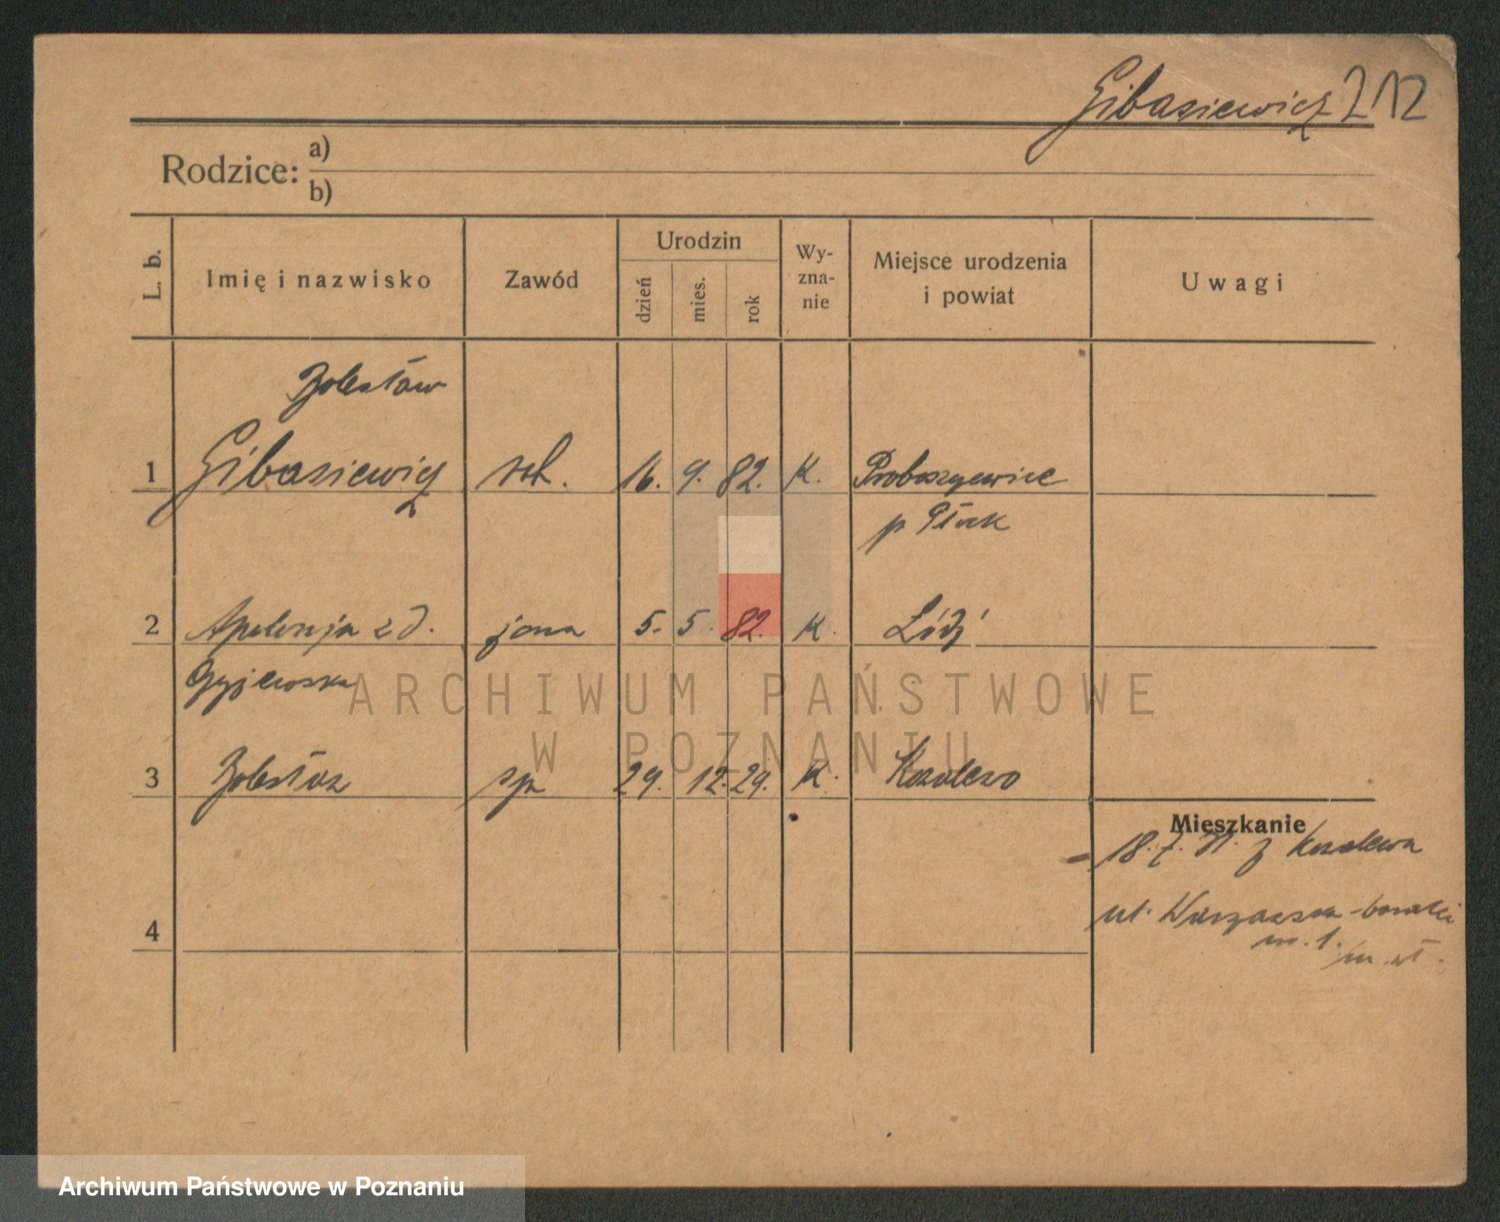 Gibasiewicz 212
Rodzice: a)
b)
L. b.
Imię i nazwisko
Zawód
Urodzin
dzień
mies.
rok
Wy-
zna-
nie
Miejsce urodzenia
i powiat
Uwagi
Bolesław
1 Gibasiewicz rob. 16. 9. 82. K. Proboszczewice
p. Płock
2 Apolonja z d. żona 5. 5. 82. K. Łódź
3 Bolesław syn 29. 12. 29. K.
Mieszkanie
18. 7. z
ul. Warszawska - baraki
m. 1.
4
ARCHIWUM PAŃSTWOWE
W POZNANIU
Archiwum Państwowe w Poznaniu